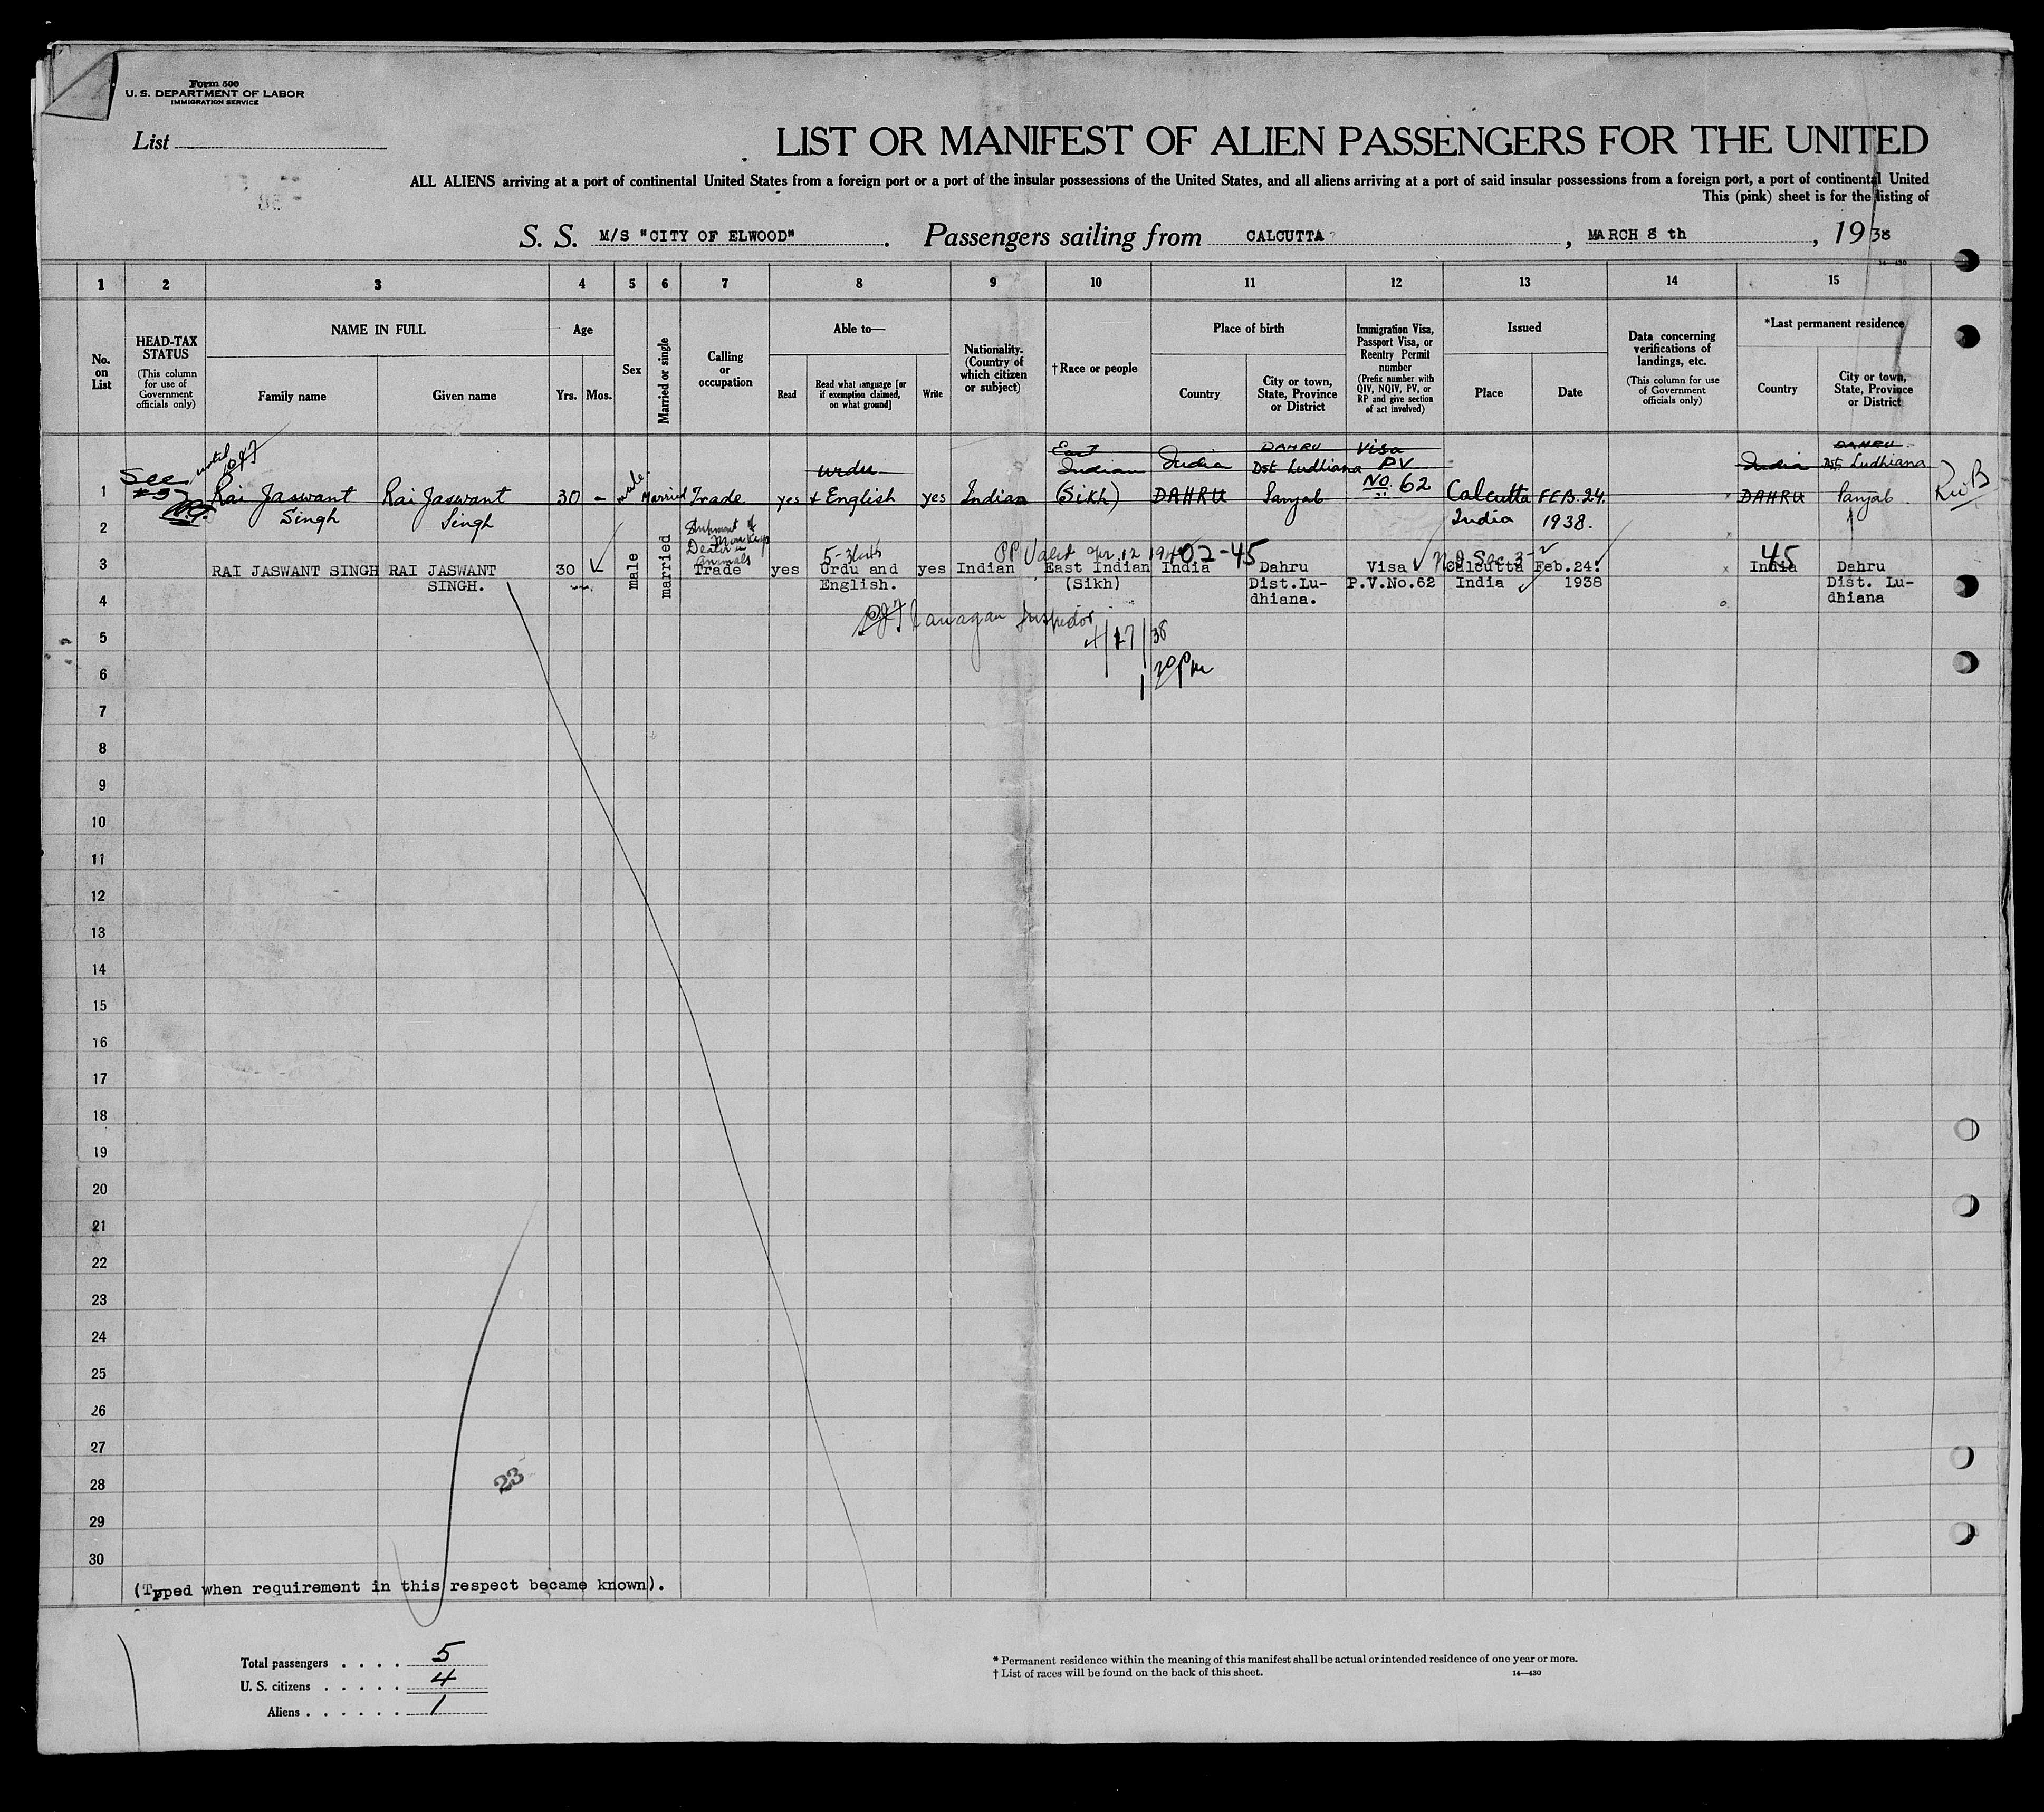 Form 500
U. S. DEPARTMENT OF LABOR
IMMIGRATION SERVICE
List
LIST OR MANIFEST OF ALIEN PASSENGERS FOR THE UNITED
ALL ALIENS arriving at a port of continental United States from a foreign port or a port of the insular possessions of the United States, and all aliens arriving at a port of said insular possessions from a foreign port, a port of continental United
This (pink) sheet is for the listing of
S. S. M/S "CITY OF ELWOOD". Passengers sailing from CALCUTTA, MARCH 8 th, 1938
14—430
1 2 3 4 5 6 7 8 9 10 11 12 13 14 15
No. on List
HEAD-TAX STATUS
(This column for use of Government officials only)
NAME IN FULL
Family name
Given name
Age
Yrs.
Mos.
Sex
Married or single
Calling or occupation
Able to—
Read
Read what language [or if exemption claimed, on what ground]
Write
Nationality. (Country of which citizen or subject)
†Race or people
Place of birth
Country
City or town, State, Province or District
Immigration Visa, Passport Visa, or Reentry Permit number
(Prefix number with QIV, NQIV, PV, or RP and give section of act involved)
Issued
Place
Date
Data concerning verifications of landings, etc.
(This column for use of Government officials only)
*Last permanent residence
Country
City or town, State, Province or District
See #3
East DAHRU Visa DAHRU
Urdu Indian India Dst Ludhiana PV India Dst Ludhiana
1 Rai Jaswant Rai Jaswant 30 - male Married Trade yes + English yes Indian (Sikh) DAHRU Panjab No. 62 Calcutta FEB. 24. DAHRU Panjab
2 Singh Singh India 1938.
Shipment of
Monkeys
Dealer in
animals
5-3
PP Valid Apr. 12 02-45
Sec 3-2
45
3 RAI JASWANT SINGH RAI JASWANT 30 male married Trade yes Urdu and yes Indian East Indian India Dahru Visa Calcutta Feb.24. India Dahru
SINGH. English. (Sikh) Dist.Lu- P.V.No.62 India 1938 Dist. Lu-
4 dhiana. dhiana
Flanagan Inspector
5 4/17/38
6 1 20 pm
7
8
9
10
11
12
13
14
15
16
17
18
19
20
21
22
23
24
25
26
27
28
23
29
30
(Typed when requirement in this respect became known).
Total passengers . . . . 5
U. S. citizens . . . . . 4
Aliens . . . . . . 1
* Permanent residence within the meaning of this manifest shall be actual or intended residence of one year or more.
† List of races will be found on the back of this sheet.
14—430